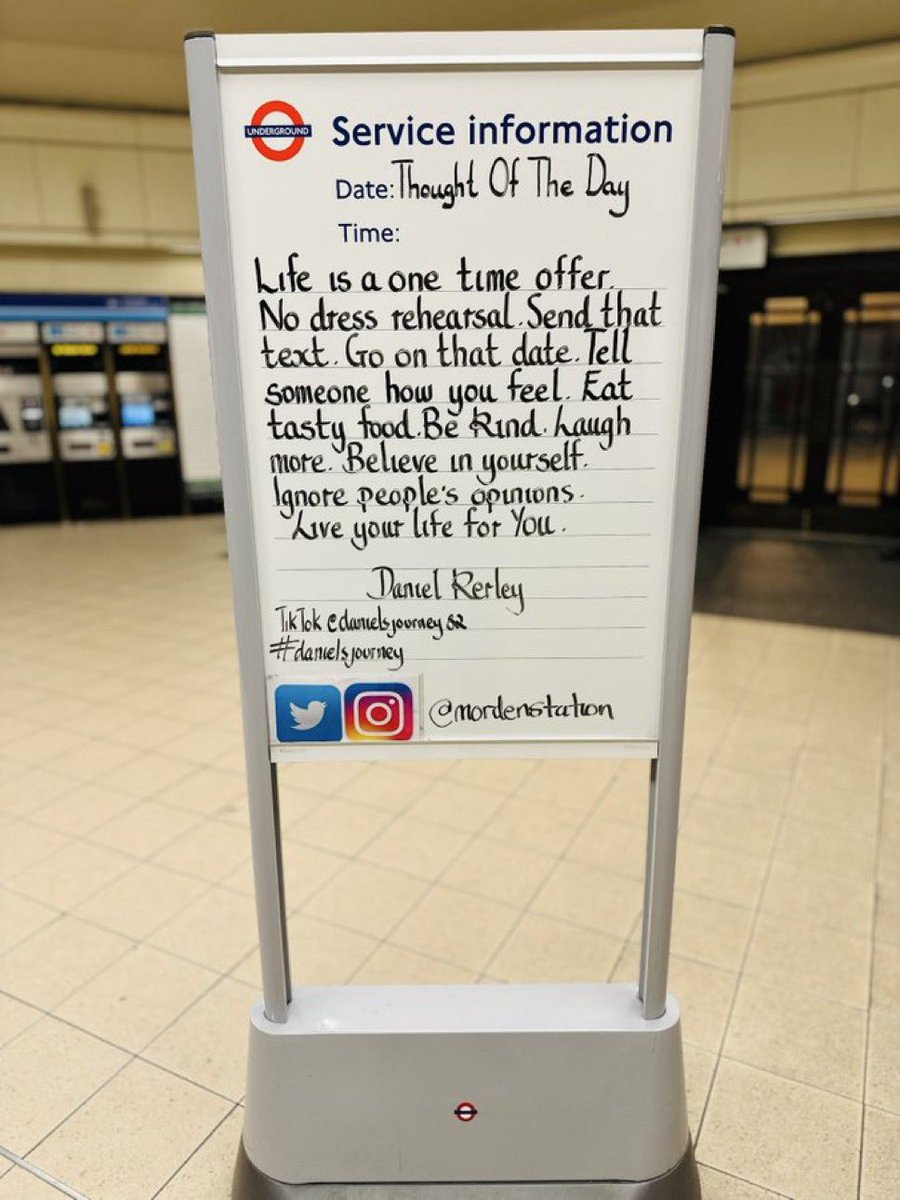 UNDERGROUND
Service information
Date: Thought Of The Day
Time:
Life is a one time offer.
No dress rehearsal. Send that
text. Go on that date. Tell
someone how you feel. Eat
tasty food. Be Kind. Laugh
more. Believe in yourself.
Ignore people's opinions.
Live your life for You.
Daniel Kerley
TikTok @danielsjourney82
#danielsjourney
@mordenstation